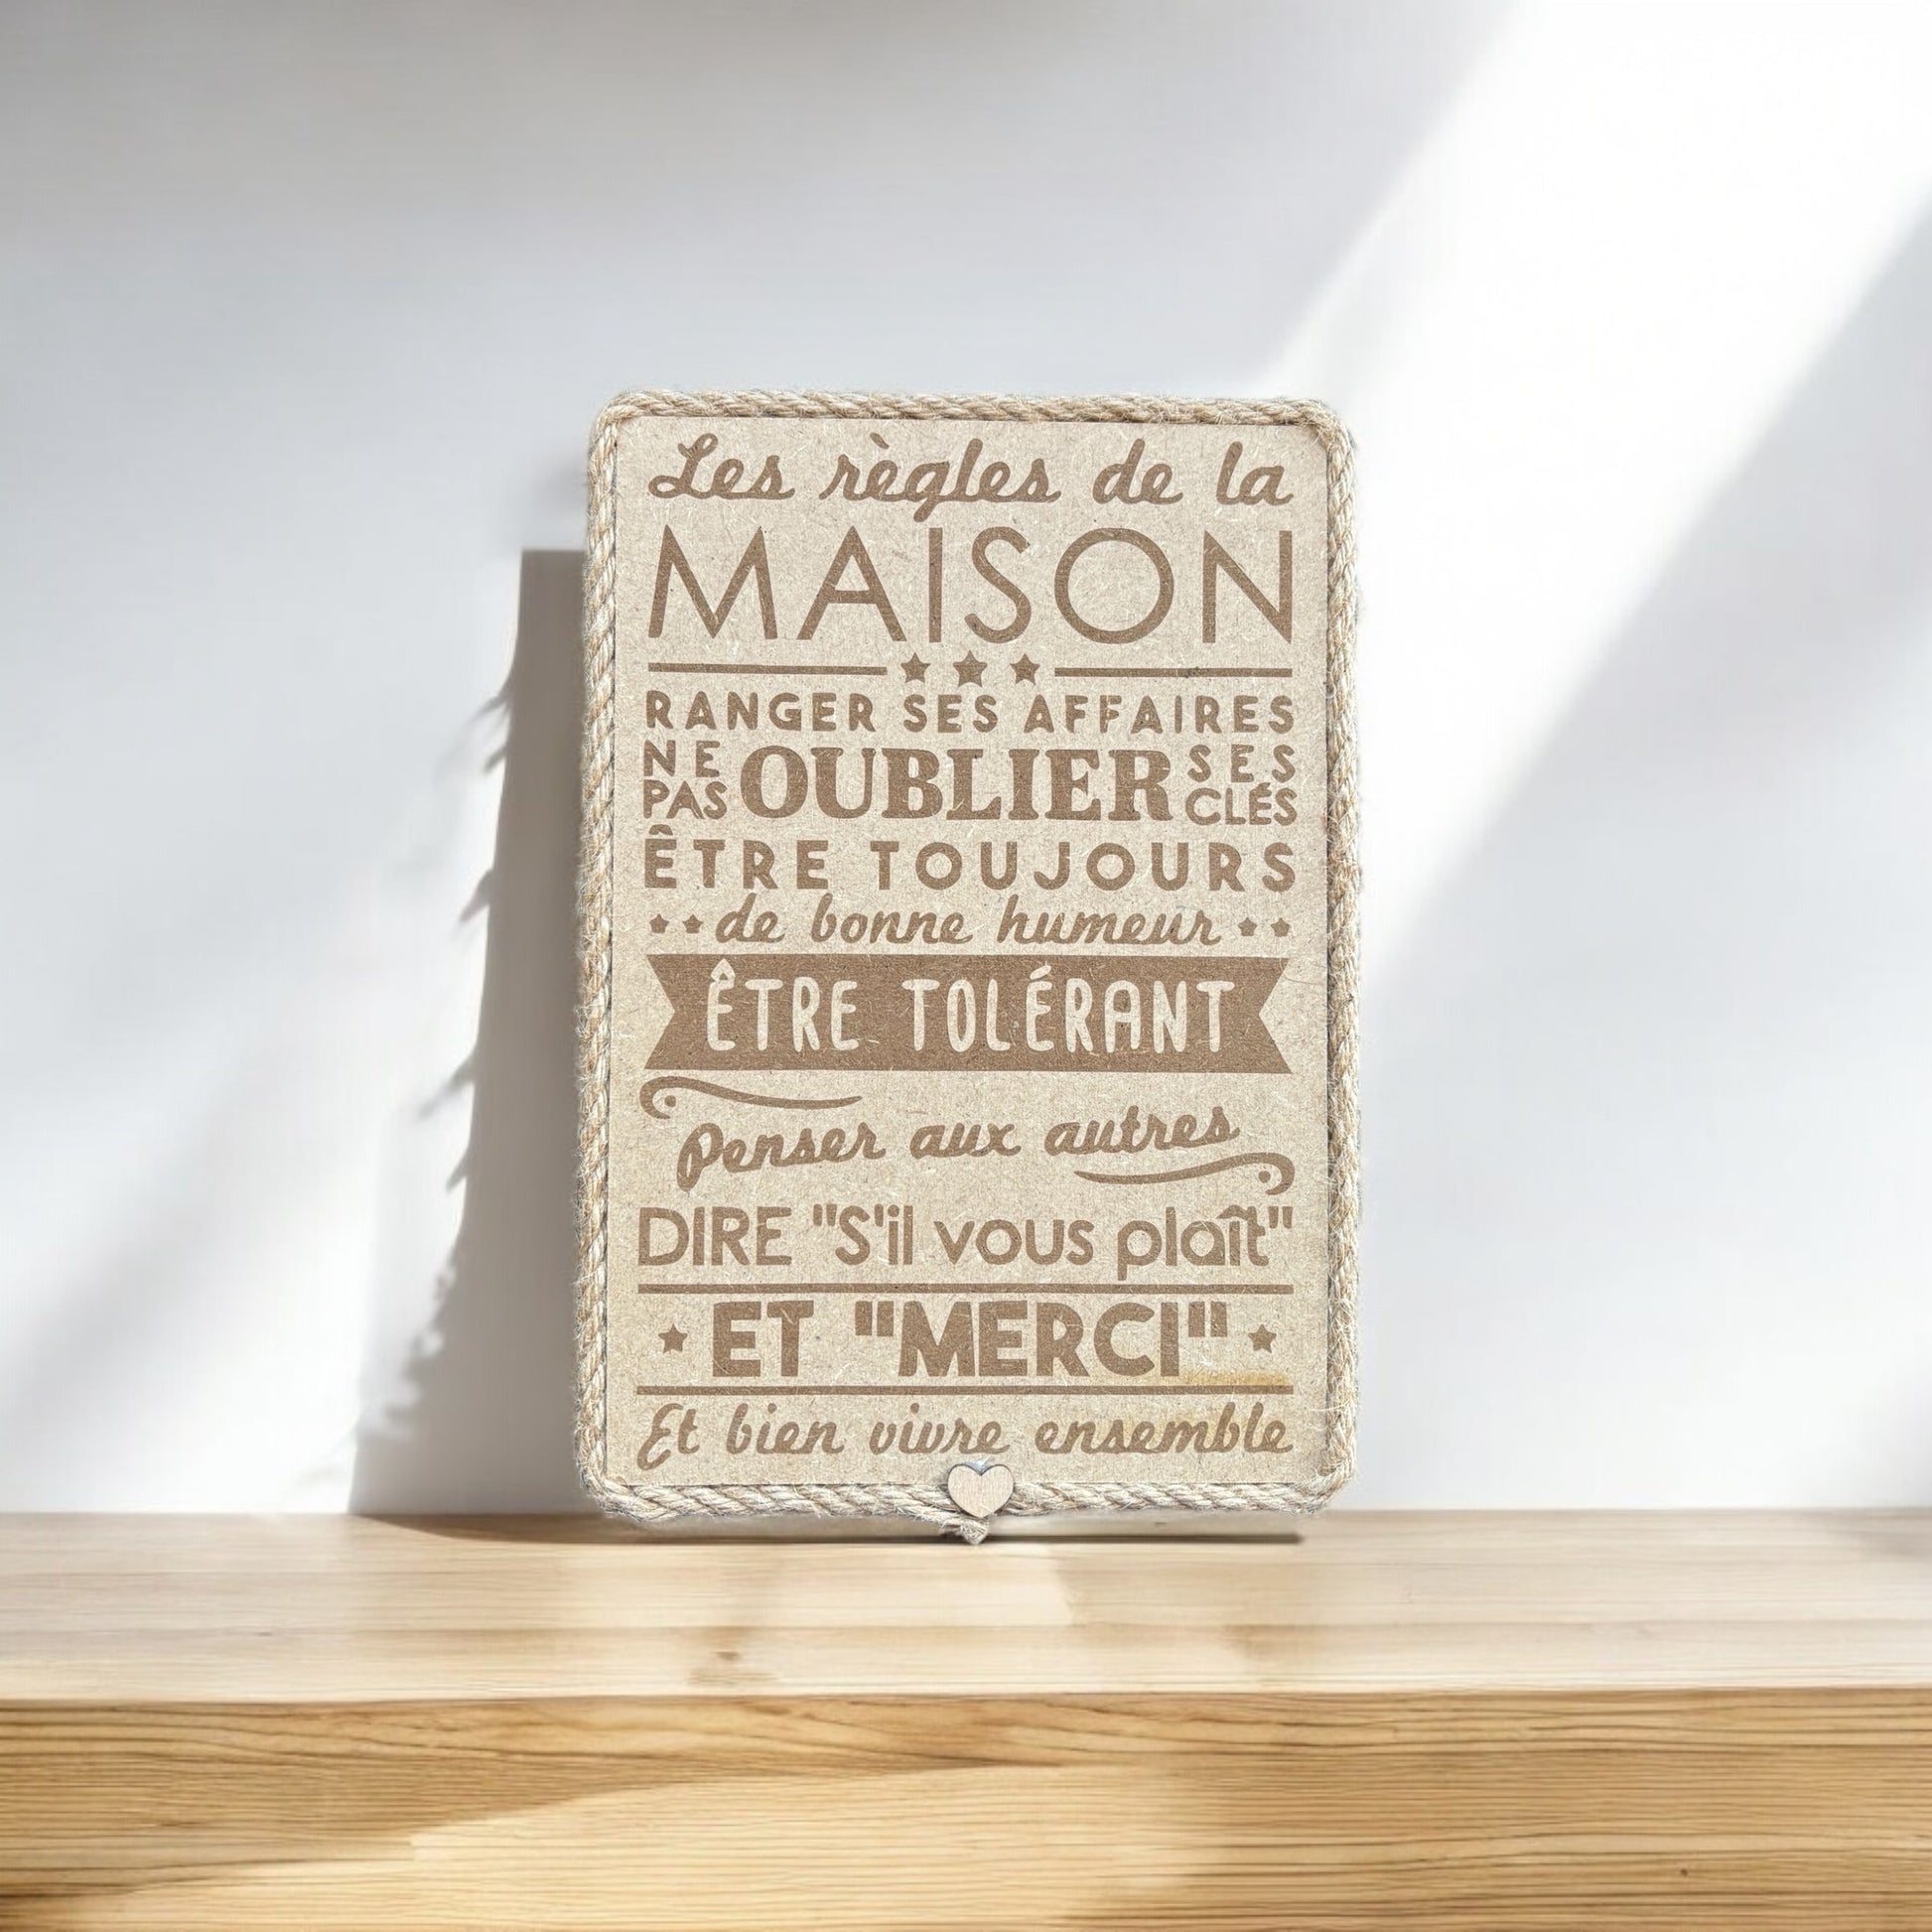 Les règles de la
MAISON
RANGER SES AFFAIRES
NE PAS OUBLIER SES CLÉS
ÊTRE TOUJOURS
de bonne humeur
ÊTRE TOLÉRANT
Penser aux autres
DIRE "S'il vous plaît"
ET "MERCI"
Et bien vivre ensemble